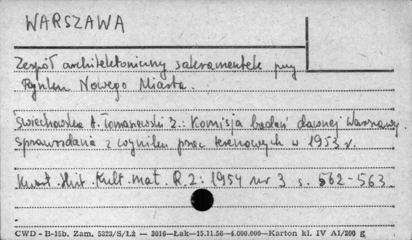 WARSZAWA
Zespół architektoniczny sakramentek przy
Rynku Nowego Miasta.
Świechowska A. Tomaszewski Z.: Komisja badań dawnej Warszawy.
Sprawozdania z wyniku prac terenowych w 1953 r.
Kwart. Hist. Kult. Mat. R. 2: 1954 nr 3 s. 562-563.
CWD - B-15b. Zam. 5223/S/Lż — 2016—Łak—15.11.56—4.000.000—Karton kl. IV A1/200 g